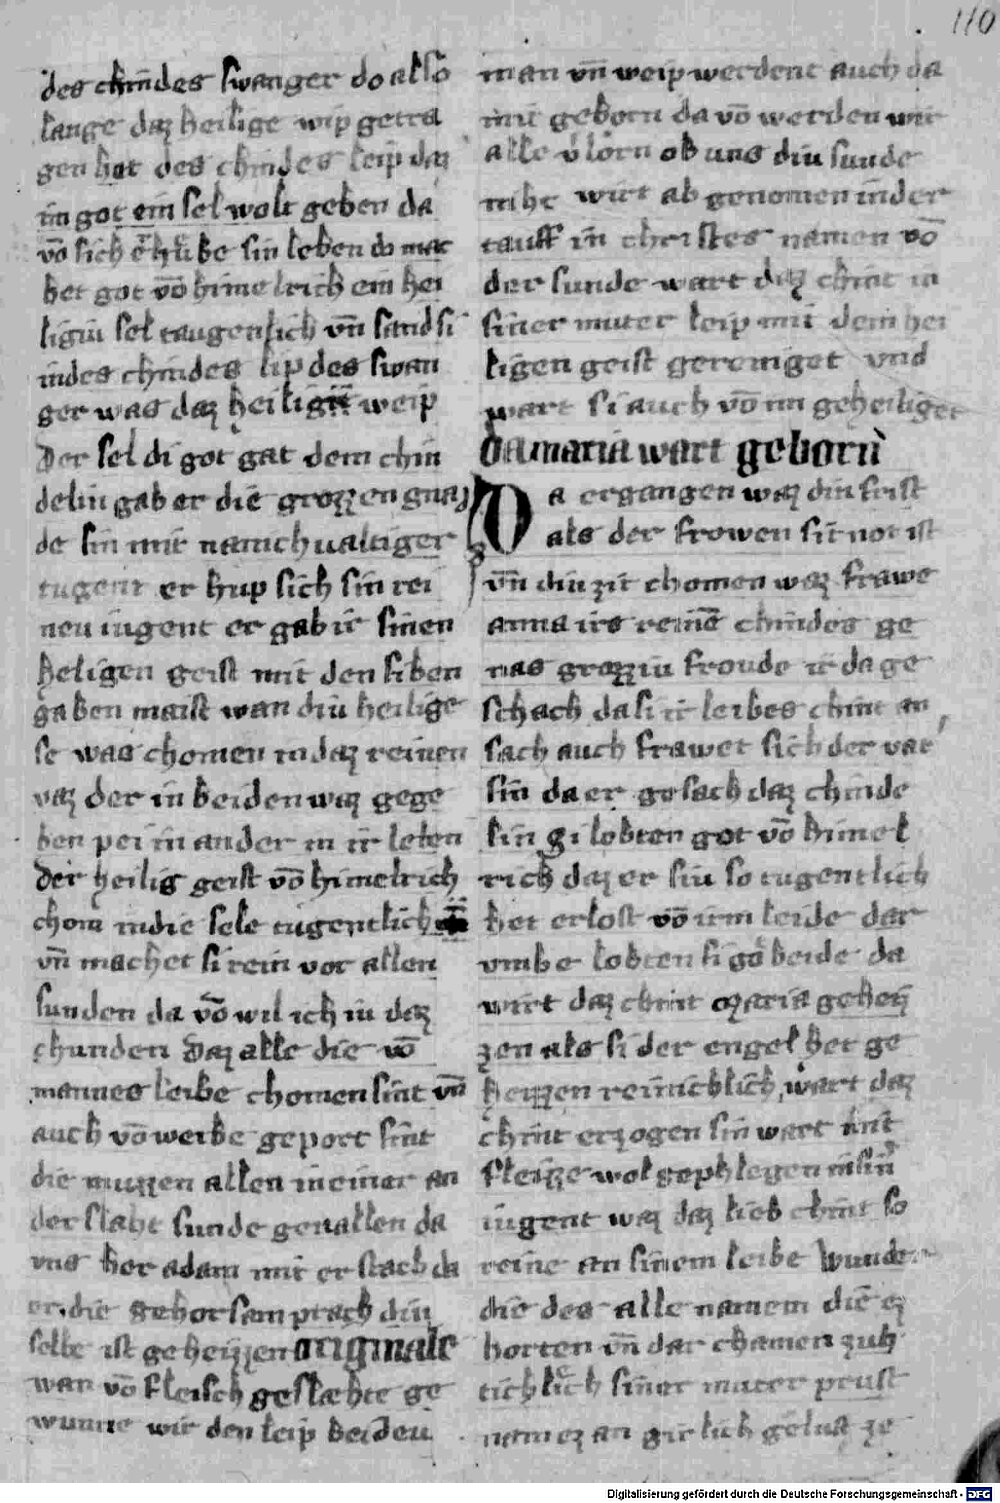 110
des chindes swanger do also
lange daz heilige wip getra
gen hat des chindes leip daz
im got ein sel wolt geben da
vō sich erhube sin leben do mac
het got vō himelrich ein hei
ligiu sel taugenlich vn̄ sand si
in des chindes lip des swan
ger was daz heilig weip
Der sel di got gab dem chin
delin gab er die grozzen gna
de sin mit manichualtiger
tugent er hup sich sin rei
neu iugent er gab ir sinen
heligen geist mit den siben
gaben maist wan diu heilige
se was chomen in daz reinen
vaz der in beiden waz gege
ben pei in ander in ir leben
der heilig geist vō himelrich
chom in die sele tugentlich
vn̄ machet si rein vor allen
sunden da vō wil ich iu daz
chunden daz alle die vō
mannes leibe chomen sint vn̄
auch vō weibe geport sint
die muzzen allen in einer an
der slaht sunde geuallen da
vns her adam mit er stach da
er die gehorsam prach diu
selbe ist geheizzen originale
wan vō fleisch geslæhte ge
wunne wir den leip beideu
man vn̄ weip werdent auch da
mit geborn da vō werden wir
alle v'lorn ob uns diu sunde
niht wirt ab genomen in der
tauff in christes namen vō
der sunde wart daz chint in
siner muter leip mit dem hei
ligen geist gereiniget vnd
wart si auch vō im geheiliget
Da maria wart geborn
Da ergangen waz diu frist
als der frowen sit not ist
vn̄ diu zit chomen waz frawe
anna irs reinē chindes ge
nas grozziu froude ir da ge
schach da si ir leibes chint an
sach auch frawet sich der vat'
sin da er gesach daz chinde
lin gi lobten got vō himel
rich daz er siu so tugentlich
het erlost vō irm leide dar
vmbe lobten si got beide da
wirt daz chint maria geheiz
zen als si der engel het ge
heizzen reinichlich wart daz
chint erzogen sin wart mit
fleizze wol gephlegen in sin'
iugent waz daz lieb chint so
reine an sinem leibe wunde
die des alle namem die ez
horten vn̄ dar chamen zuh
tichlich siner muter prust
nam ez an girlich gelust ze
Digitalisierung gefördert durch die Deutsche Forschungsgemeinschaft - DFG